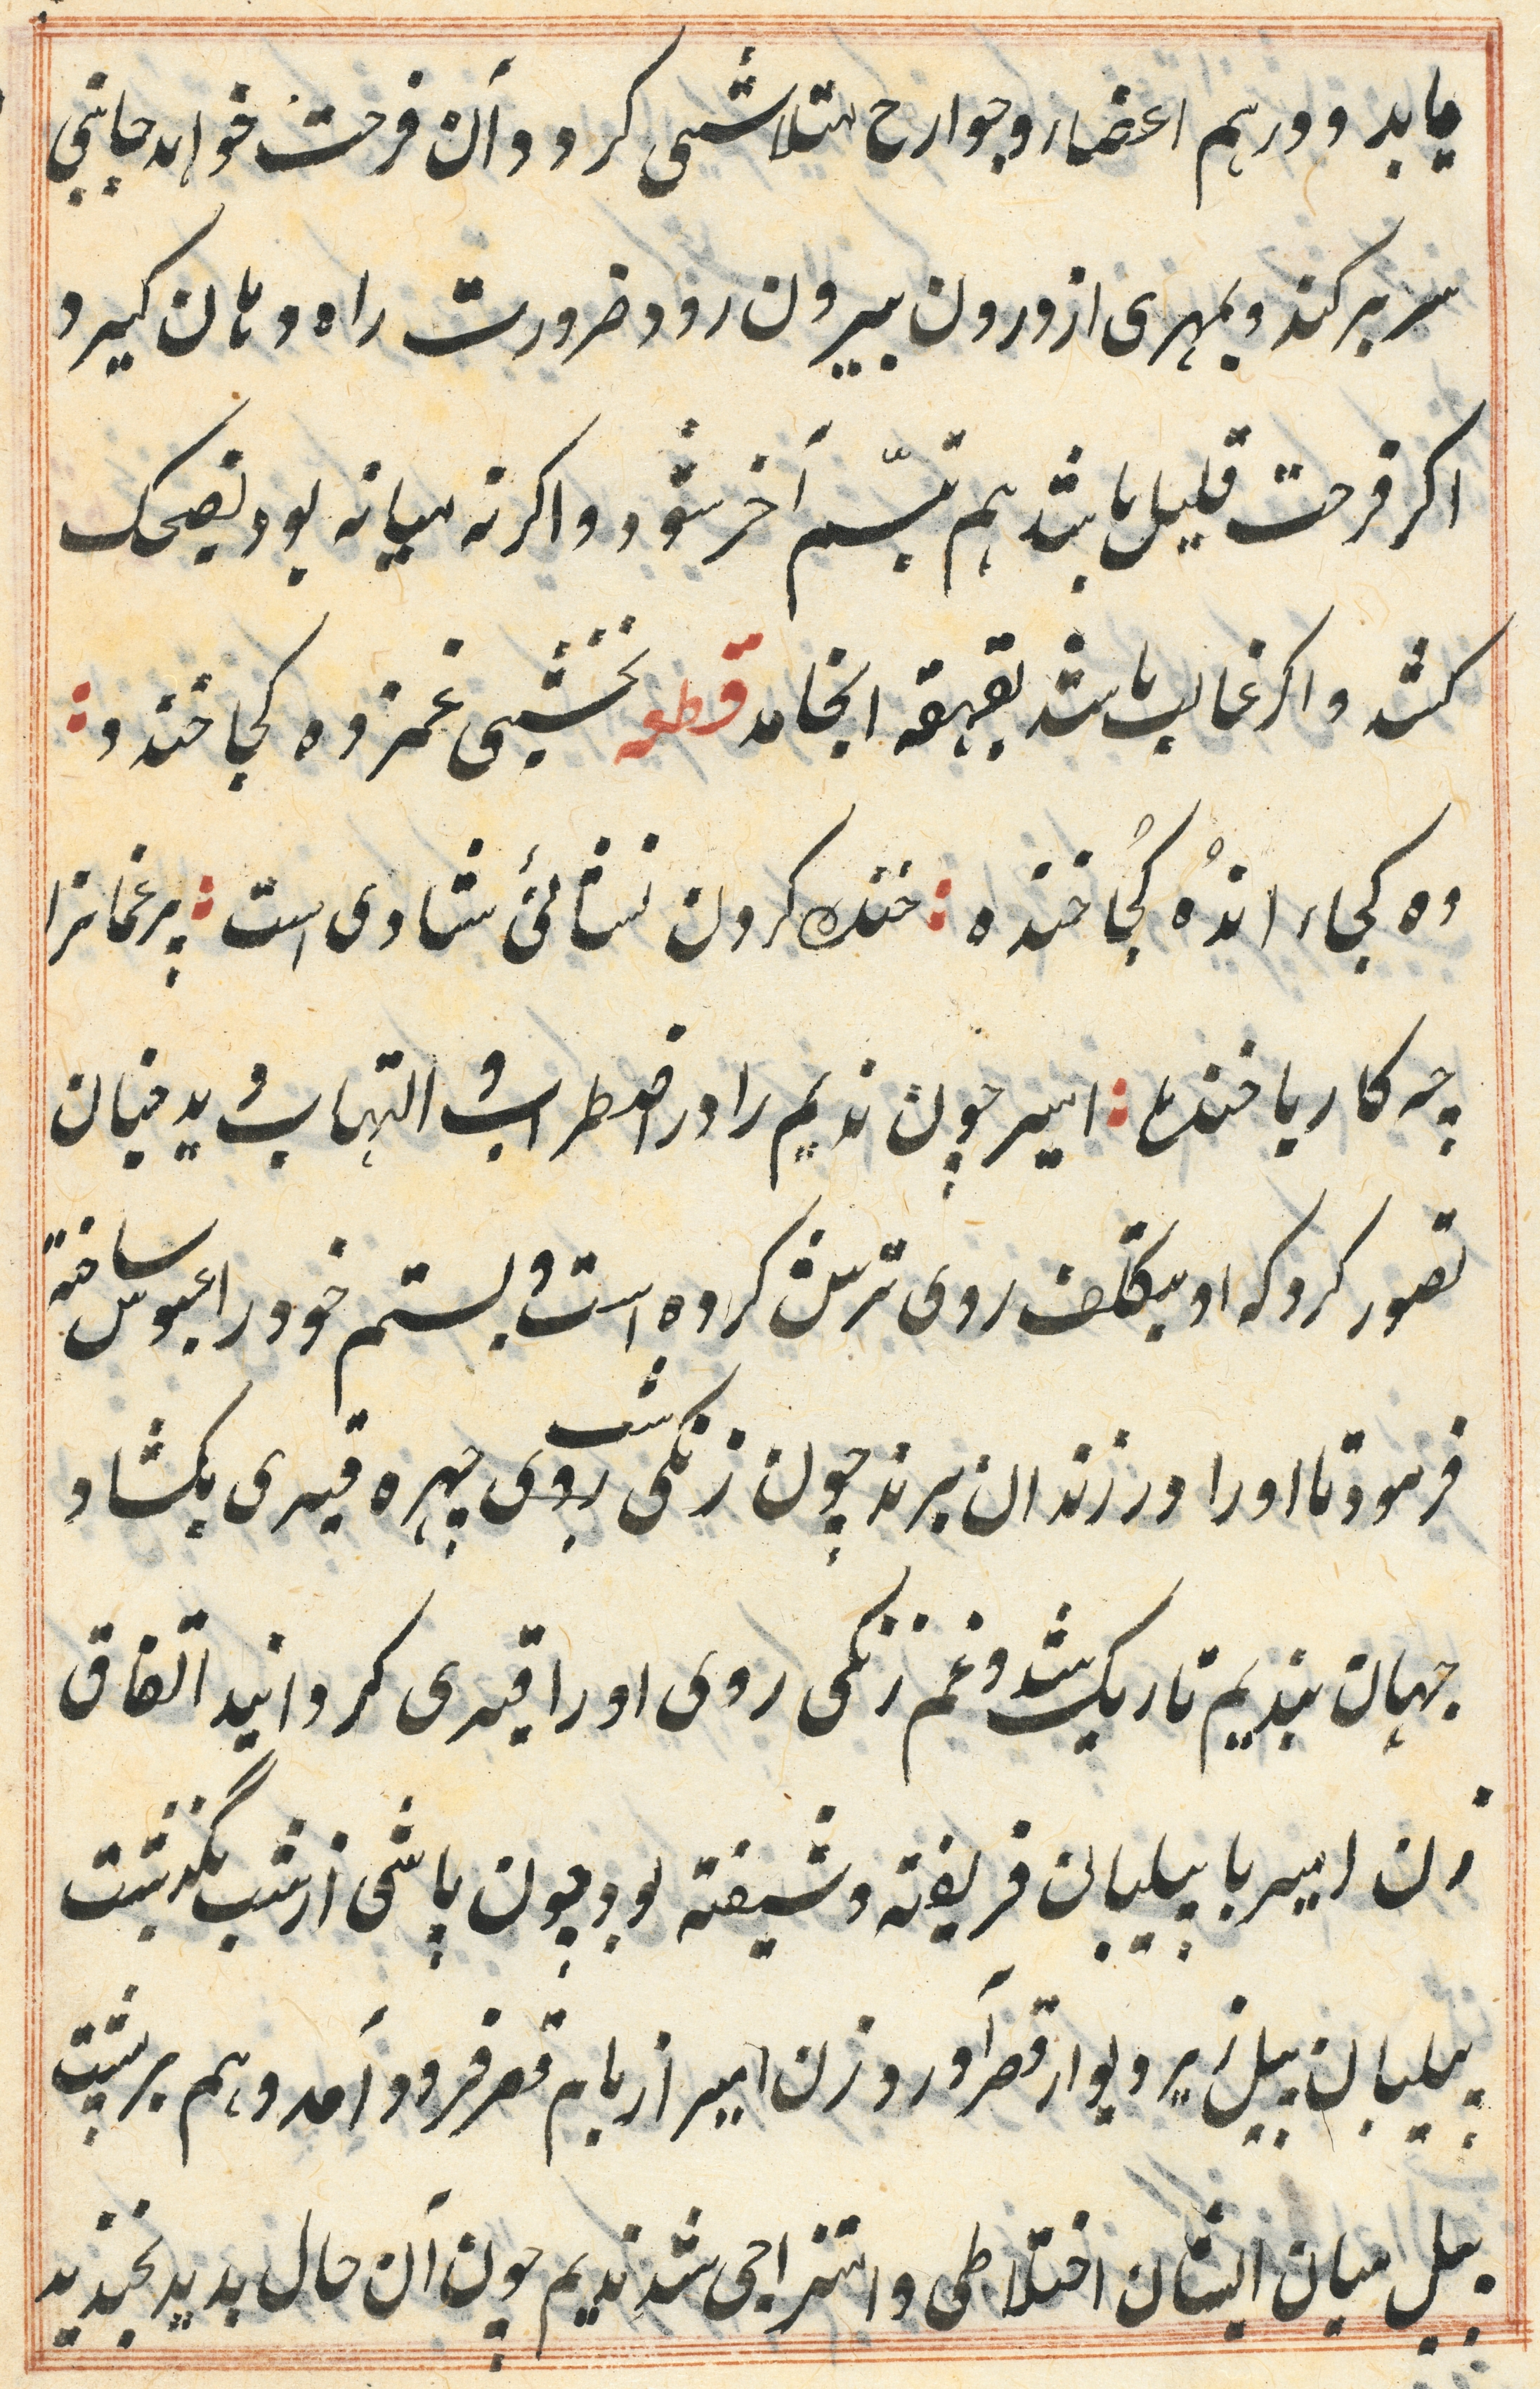 یابد و در هم اعضا و جوارح متلاشی کردد و آن فرحت خواهد جانبی
سر بر کند و بمهری از درون بیرون رود ضرورت راه دهان کیرد
اکر فرحت قلیل باشد هم تبسّم آخر شود و اکر نه میانه بود بضحک
کشد و اکر غالب باشد بقهقه انجامد قطعه نخشبی غمزده کجا خندد :
ده کجاء اندُه کُجا خنده : خنده کردن نشانئ شادی است : پر غمانرا
چه کار با خنده : امیر چون ندیم را در اضطراب و التهاب دید چنان
تصور کرد که او بتکلف روی ترش کرده است و بستم خود را عبوس ساخته
فرمود تا او را در زندان برند چون زنکی شب روی چهره قیری بکشاد
جهان بندیم تاریک شد و غم زنکی روی او را قیری کردانید اتفاق
زن امیر با پیلبانی فریفته و شیفته بود چون پاشی از شب بگذشت
پیلبان پیل زیر دیوار قصر آورد و زن امیر از بام قصر فرود آمد و هم بر پشت
پیل میان ایشان اختلاطی و امتزاجی شد ندیم چون آن حال بدید بخندید